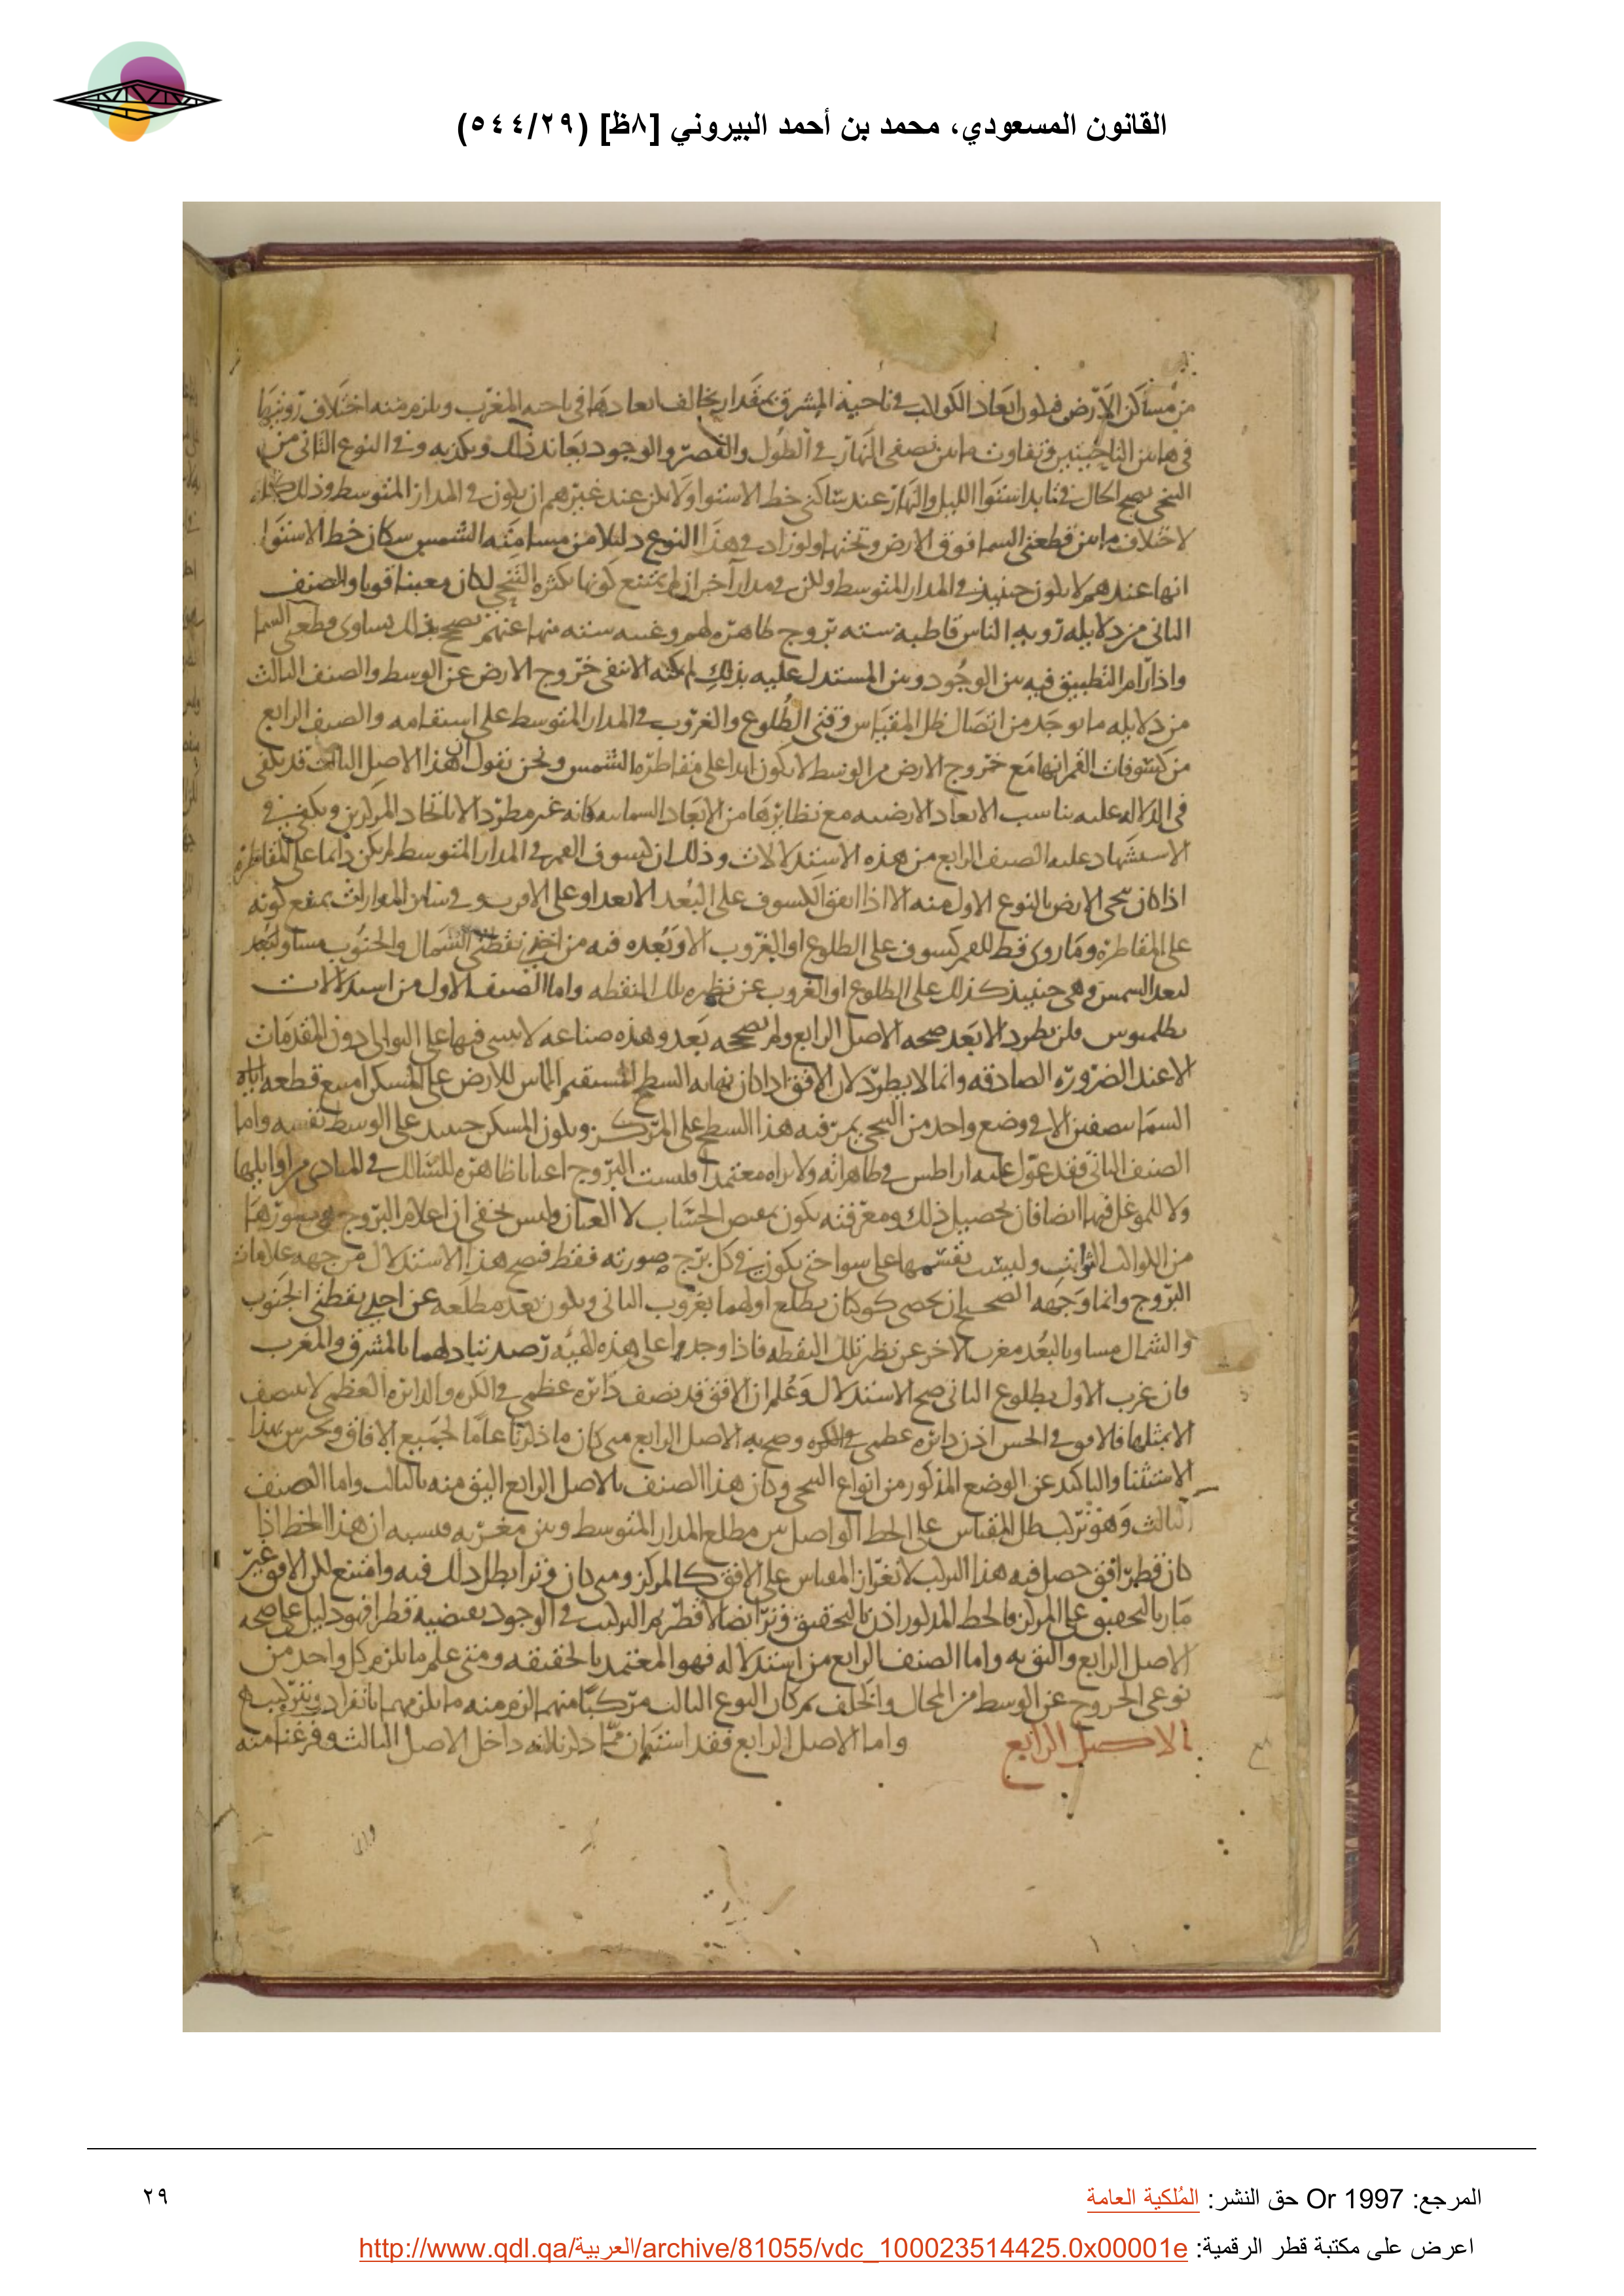 القانون المسعودي، محمد بن أحمد البيروني [٨ظ] (٥٤٤/٢٩)
من مساكن الارض فيكون ابعاد الكواكب في ناحية المشرق بمقدار يخالف ابعادها في ناحيه المغرب ويلزم منه اختلاف رويتها
في هاتين الناحيتين وتفاوت ما بين نصفى النهار في الطول والقصر والوجود يعاند ذلك ويكذبه وفي النوع الثاني من
التنحي يصح الحال في استوا الليل والنهار عند ساكني خط الاستوا ولا يكن عند غيرهم ان يكون في المدار المتوسط وذلك كله
لاختلاف ما بين قطعتي السما فوق الارض وتحتها ولو زاد في هذا النوع دليلا من مسامته الشمس سكان خط الاستوا
انها عندهم لا يكون حينيذ في المدار المتوسط ولكن في مدار آخر ان لم يمتنع كونها بكثره التنحي لكان معينا قويا والصنف
الثاني من دلايله رويه الناس قاطبة سته بروج ظاهره لهم وغيبه سته منها عنهم تصح بذلك تساوى قطعتي السما
واذا رام التطبيق فيه بين الوجود وبين المستدل عليه بذلك لم يمكنه الا نفى خروج الارض عن الوسط والصنف الثالث
من دلايله ما يوجد من اتصال ظل المقياس وقتي الطلوع والغروب في المدار المتوسط على استقامه والصنف الرابع
من كسوفات القمر انها مع خروج الارض من الوسط لا يكون ابدا على مقاطره الشمس ونحن نقول ان هذا الاصل الثالث قد يكفى
في الدلاله عليه تناسب الابعاد الارضيه مع نظايرها من الابعاد السماييه فانه غير مطرد الا باتحاد المركزين ويكفي في
الاستشهاد عليه الصنف الرابع من هذه الاستدلالات وذلك ان كسوف القمر في المدار المتوسط لم يكن دايما على المقاطرة
اذا كان تنحي الارض بالنوع الاول منه الا اذا اتفق الكسوف على البعد الابعد او على الاقرب وفي ساير المدارات يمتنع كونه
على المقاطره وما روى قط للقمر كسوف على الطلوع او الغروب الا وبعده فيه من احدى نقطتي الشمال والجنوب مساو لبعد
لبعد الشمس وهي حينيذ كذلك على الطلوع او الغروب عن نظيره تلك النقطه واما الصنف الاول من استدلالات
بطلميوس فلن يطرد الا بعد صحه الاصل الرابع ولم نصححه بعد وهذه صناعه لا يبنى فيها على التوالى دون المقدمات
الا عند الضروره الصادقه وانما لا يطرد لان الافق اذا كان نهايه السطح المستقيم الماس للارض على المسكن امتنع قطعه اياه
السما بنصفين الا في وضع واحد من التنحي يمر فيه هذا السطح على المركز ويكون المسكن حينيذ على الوسط نفسه واما
الصنف الثاني فقد عول عليه اراطس في ظاهراته ولا نراه معتمدا فليست البروج اعيانا ظاهره للسالك في المبادى من اوايلها
ولا للموغل فيها ايضا فان تحصيل ذلك ومعرفته يكون بمقتضى الحساب لا العيان وليس يخفى ان اعلام البروج هي صورها
من الكواكب الثوابت وليست تقسمها على سوا حتى يكون في كل برج صورته فقط فيصح هذا الاستدلال من جهه علامات
البروج وانما وجهه الصحيح ان يحصى كوكبان يطلع اولهما بغروب الثاني ويكون بعد مطلعه عن احدى نقطتي الجنوب
والشمال مساويا لبعد مغرب الاخر عن نظير تلك النقطه فاذا وجدوا على هذه الهيئه رصد تبادلهما بالمشرق والمغرب
فان غرب الاول بطلوع الثاني صح الاستدلال وعلم ان الافق قد نصف دايره عظمى في الكره والدايره العظمى لا تنتصف
الا بمثلها فالافق في الحس اذن دايره عظمى في الكره وصح به الاصل الرابع متى كان ما ذكرنا عاما لجميع الافاق ونحترس بهذا
الاستثنا والتاكيد عن الوضع المذكور من انواع التنحي وكان هذا الصنف بالاصل الرابع اليق منه بالثالث واما الصنف
الثالث وهو تركب ظل المقياس على الخط الواصل بين مطلع المدار المتوسط وبين مغربه فسببه ان هذا الخط اذا
كان قطر افق حصل فيه هذا التركب لا لغير ان المقياس على الافق كالمركز ومتى كان وترا بطل ذلك فيه وامتنع لكن الافق غير
مار بالتحقيق على المركز فالخط المذكور اذن بالتحقيق وتر ايضا لا قطر ثم التركيب في الوجود يقتضيه قطرا فهو دليل على صحه
الاصل الرابع واليق به واما الصنف الرابع من استدلاله فهو المعتمد بالحقيقه ومتى علم ما يلزم كل واحد من
نوعى الخروج عن الوسط من المحال والخلف ثم كان النوع الثالث مركبا منهما لزم منه ما يلزمهما بانفراد وتركيب
الاصل الرابع واما الاصل الرابع فقد استبان مما ذكرنا انه داخل الاصل الثالث وفرغنا منه
المرجع: Or 1997 حق النشر: المُلكية العامة
٢٩
اعرض على مكتبة قطر الرقمية: http://www.qdl.qa/العربية/archive/81055/vdc_100023514425.0x00001e